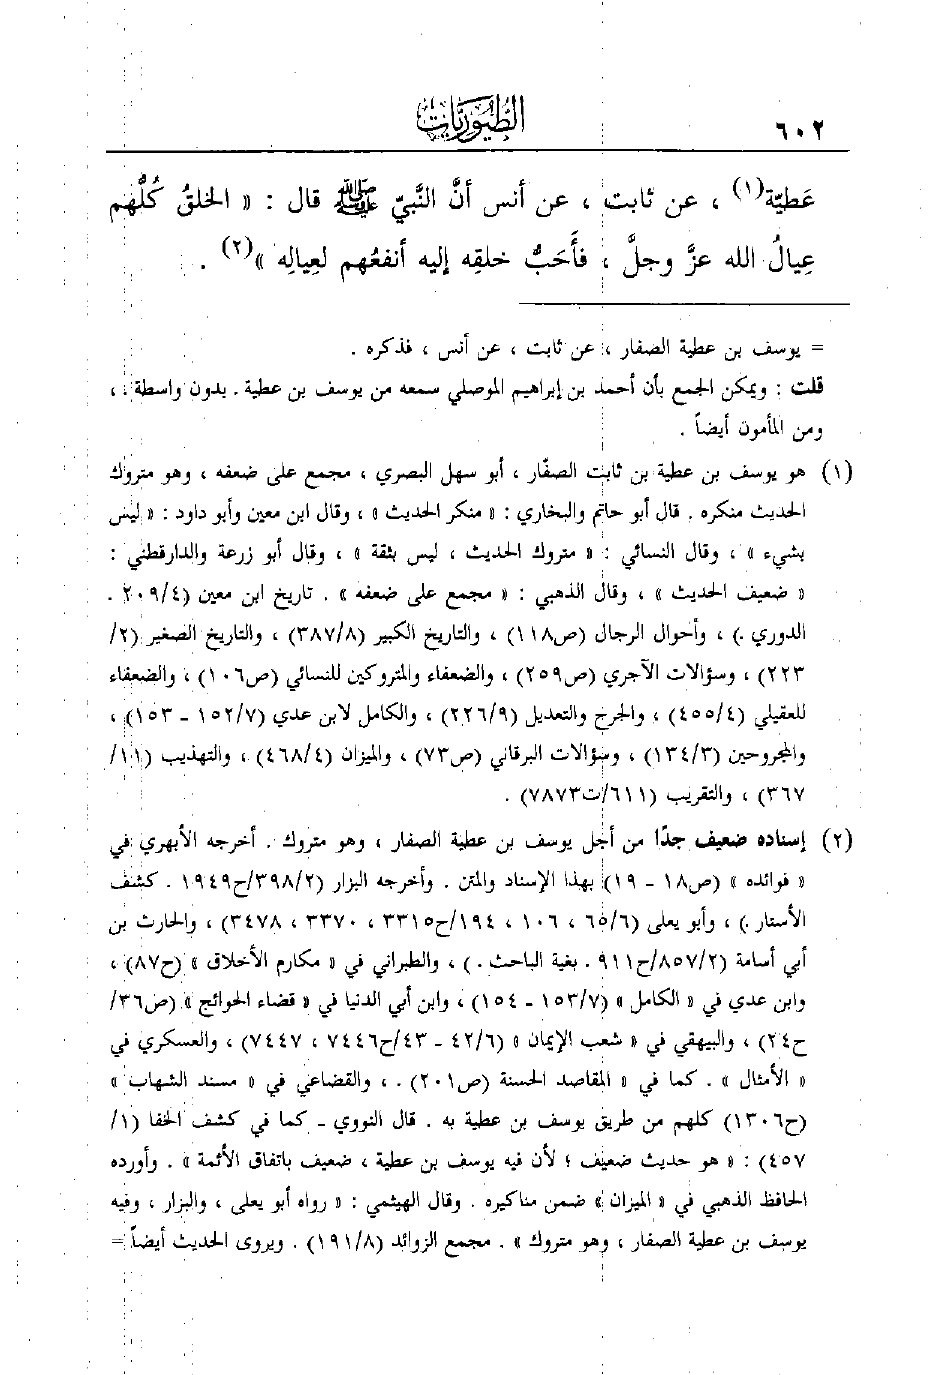 ٦٠٢
الطيوريات
عَطيّة(١) ، عن ثابت ، عن أنس أنَّ النَّبيّ ﷺ قال : « الخلقُ كُلُّهم
عِيالُ الله عزَّ وجلَّ ، فأَحَبُّ خلقِه إليه أنفعُهم لعِيالِه »(٢) .
= يوسف بن عطية الصفار ، عن ثابت ، عن أنس ، فذكره .
قلت : ويمكن الجمع بأن أحمد بن إبراهيم الموصلي سمعه من يوسف بن عطية . بدون واسطة ،
ومن المأمون أيضاً .
(١) هو يوسف بن عطية بن ثابت الصفّار ، أبو سهل البصري ، مجمع على ضعفه ، وهو متروك
الحديث منكره . قال أبو حاتم والبخاري : « منكر الحديث » ، وقال ابن معين وأبو داود : « ليس
بشيء » ، وقال النسائي : « متروك الحديث ، ليس بثقة » ، وقال أبو زرعة والدارقطني :
« ضعيف الحديث » ، وقال الذهبي : « مجمع على ضعفه » . تاريخ ابن معين (٢٠٩/٤ .
الدوري .) ، وأحوال الرجال (ص١١٨) ، والتاريخ الكبير (٣٨٧/٨) ، والتاريخ الصغير (٢/
٢٢٣) ، وسؤالات الآجري (ص٢٥٩) ، والضعفاء والمتروكين للنسائي (ص١٠٦) ، والضعفاء
للعقيلي (٤٥٥/٤) ، والجرح والتعديل (٢٢٦/٩) ، والكامل لابن عدي (١٥٢/٧ - ١٥٣) ،
والمجروحين (١٣٤/٣) ، وسؤالات البرقاني (ص٧٣) ، والميزان (٤٦٨/٤) ، والتهذيب (١١/
٣٦٧) ، والتقريب (٦١١/ت٧٨٧٣) .
(٢) إسناده ضعيف جدًا من أجل يوسف بن عطية الصفار ، وهو متروك . أخرجه الأبهري في
« فوائده » (ص١٨ - ١٩) بهذا الإسناد والمتن . وأخرجه البزار (٣٩٨/٢/ح١٩٤٩ . كشف
الأستار .) ، وأبو يعلى (٦٥/٦ ، ١٠٦ ، ١٩٤/ح٣٣١٥ ، ٣٣٧٠ ، ٣٤٧٨) ، والحارث بن
أبي أسامة (٨٥٧/٢/ح٩١١ . بغية الباحث .) ، والطبراني في « مكارم الأخلاق » (ح٨٧) ،
وابن عدي في « الكامل » (١٥٣/٧ - ١٥٤) ، وابن أبي الدنيا في « قضاء الحوائج » (ص٣٦/
ح٢٤) ، والبيهقي في « شعب الإيمان » (٤٢/٦ - ٤٣/ح٧٤٤٦ ، ٧٤٤٧) ، والعسكري في
« الأمثال » . كما في « المقاصد الحسنة (ص٢٠١) . ، والقضاعي في « مسند الشهاب »
(ح١٣٠٦) كلهم من طريق يوسف بن عطية به . قال النووي - كما في كشف الخفا (١/
٤٥٧) : « هو حديث ضعيف ؛ لأن فيه يوسف بن عطية ، ضعيف باتفاق الأئمة » . وأورده
الحافظ الذهبي في « الميزان » ضمن مناكيره . وقال الهيثمي : « رواه أبو يعلى ، والبزار ، وفيه
يوسف بن عطية الصفار ، وهو متروك » . مجمع الزوائد (١٩١/٨) . ويروى الحديث أيضاً =